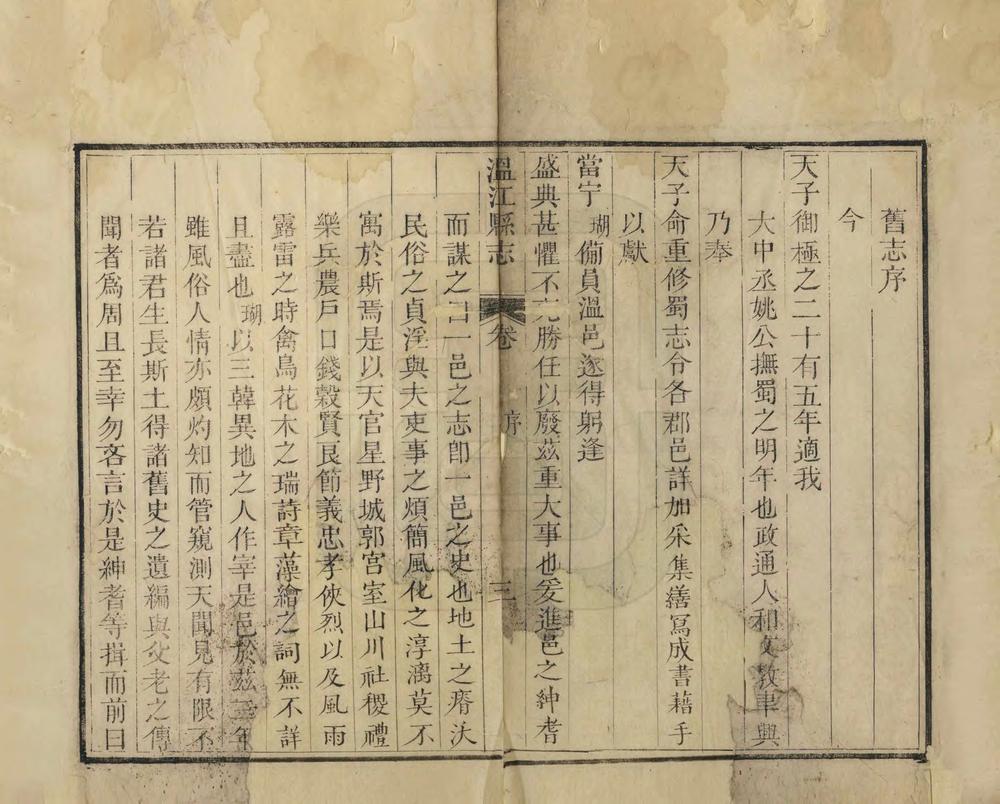 舊志序
今
天子御極之二十有五年適我
大中丞姚公撫蜀之明年也政通人和文教聿興
乃奉
天子命重修蜀志令各郡邑詳加采集繕寫成書藉手
以獻
當宁瑚備員溫邑遂得躬逢
盛典甚懼不克勝任以廢茲重大事也爰進邑之紳耆
溫江縣志 卷 序 三
而謀之曰一邑之志卽一邑之史也地土之瘠沃
民俗之貞淫與夫吏事之煩簡風化之淳漓莫不
寓於斯焉是以天官星野城郭宮室山川社稷禮
樂兵農戶口錢穀賢良節義忠孝俠烈以及風雨
露雷之時禽鳥花木之瑞詩章藻繪之詞無不詳
且盡也瑚以三韓異地之人作宰是邑於茲三年
雖風俗人情亦頗灼知而管窺測天聞見有限不
若諸君生長斯土得諸舊史之遺編與父老之傳
聞者爲周且至幸勿吝言於是紳耆等揖而前曰